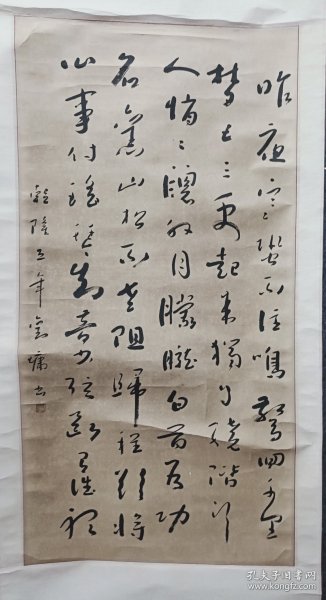 昨夜寒蛩不住鳴驚回千里
夢已三更起來獨自繞階行
人悄〻窗外月朧朧白首為功
名舊山松竹老阻歸程欲將
心事付瑤琴知音少弦斷有誰聽
乾隆五年劉墉書
孔夫子旧书网